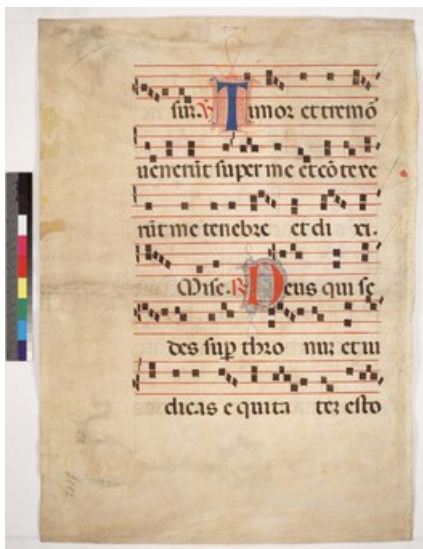 sur. ℣ Timor et tremo᷒
uenerūt super me et cōtexe
rūt me tenebre et di xi.
Mise. ℟ Deus qui se
des sup̱ thro num et iu
dicas e quita tez esto